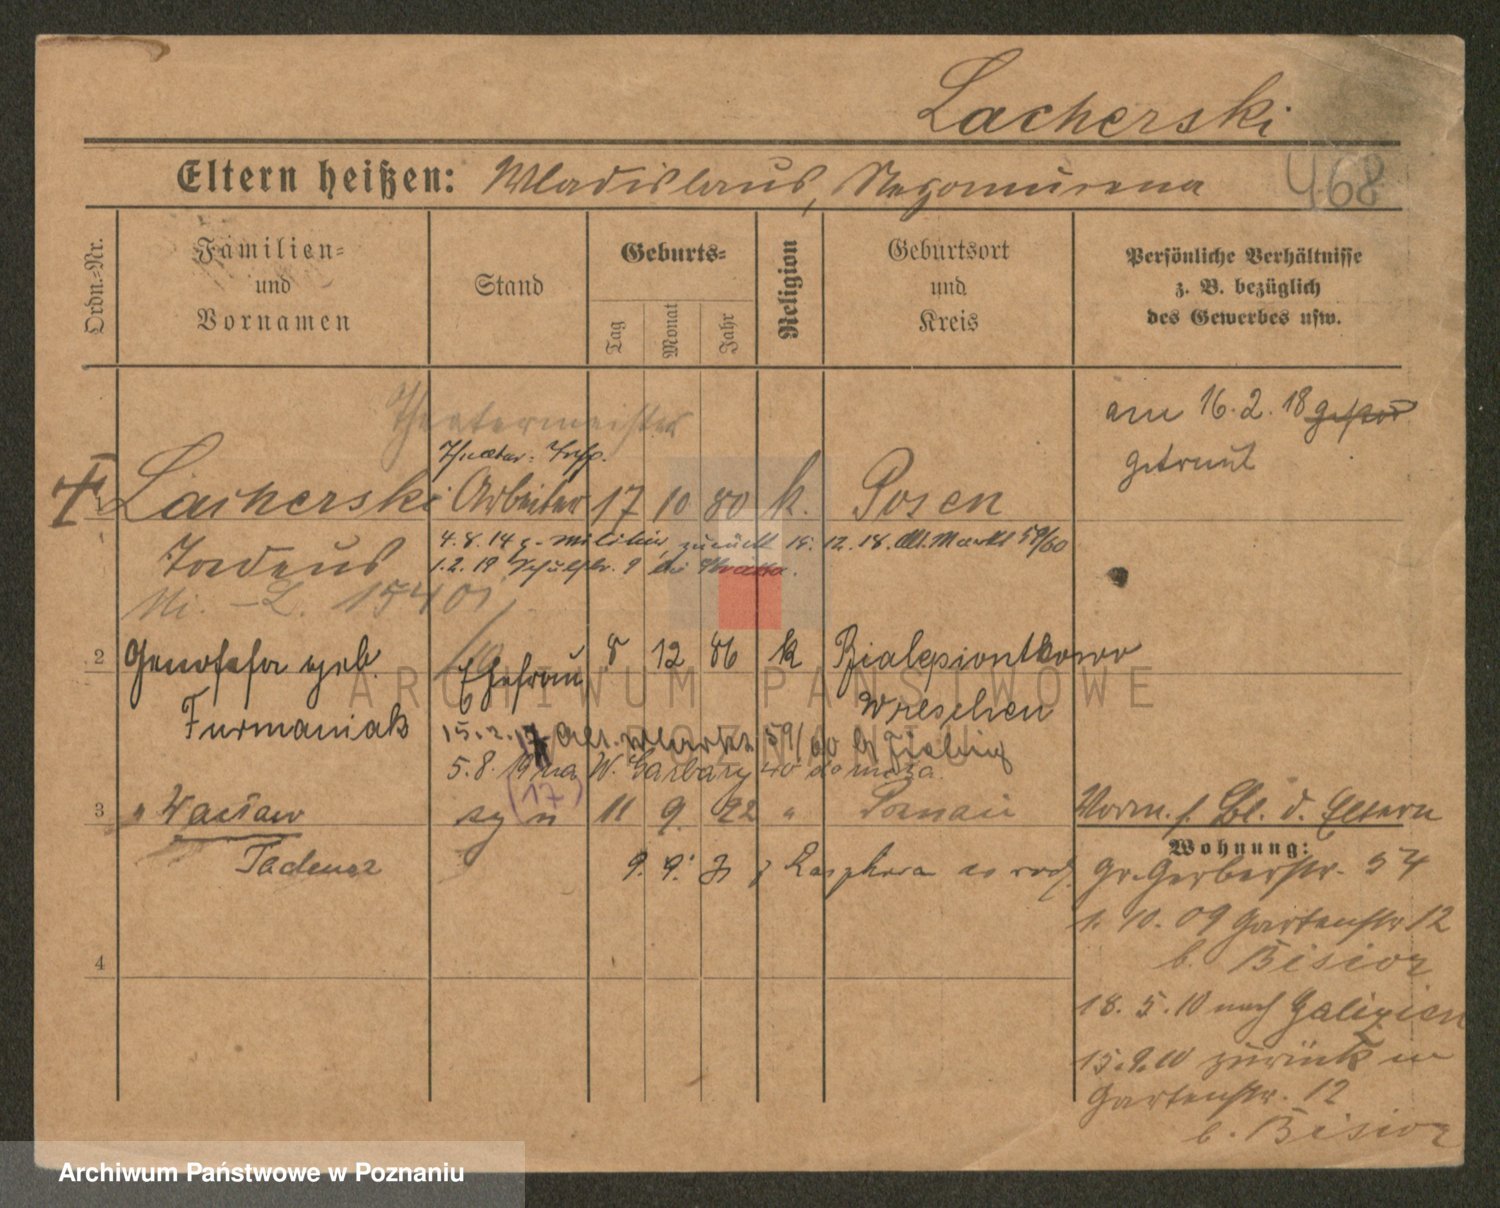 Lacherski
468
Eltern heißen: Wladislaus,
Ordn.-Nr.
Familien-
und
Vornamen
Stand
Geburts-
Tag
Monat
Jahr
Religion
Geburtsort
und
Kreis
Persönliche Verhältnisse
z. B. bezüglich
des Gewerbes usw.
am 16.2.18
getraut
Theatermeister
Lacherski Arbeiter 17 10 80 k. Posen
4.8.14 z. Militär, zurück 12.18. Alt. Markt 59/60
Tadeus
1.2.19
2 Genofefa geb. Ehefrau 8 12 86 k
Furmaniak
Wreschen
15.2.17 Alt. Markt 59/60 b
5.8.19 na W. Garbary 40 do męża.
(17)
3 " Wacław syn 11 9. 22 " Poznań
Tadeusz
Vorm. s. Bl. d. Eltern
Wohnung:
Gr. Gerberstr. 54
1. 10. 09 Gartenstr 12
b. Bisior
4
18. 5. 10 nach Galizien
15.9.10 zurück
Gartenstr. 12
b. Bisior
ARCHIWUM PAŃSTWOWE
W POZNANIU
Archiwum Państwowe w Poznaniu